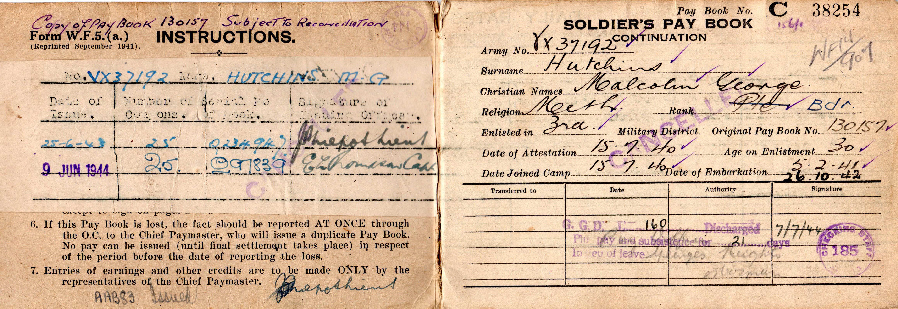 Copy of Pay Book 130157 Subject to Reconciliation
Form W.F.5.(a.)
(Reprinted September 1941).
INSTRUCTIONS.
No. VX37192 Name. HUTCHINS M G
Date of Issue.
Number of
Serial No of Book.
Signature of
25-6-43 25
9 JUN 1944 25
6. If this Pay Book is lost, the fact should be reported AT ONCE through
the O.C. to the Chief Paymaster, who will issue a duplicate Pay Book.
No pay can be issued (until final settlement takes place) in respect
of the period before the date of reporting the loss.
7. Entries of earnings and other credits are to be made ONLY by the
representatives of the Chief Paymaster.
AAB83 Issued
Pay Book No. C 38254
SOLDIER'S PAY BOOK
CONTINUATION
Army No. VX37192
Surname Hutchins
Christian Names Malcolm George
Religion Meth Rank Bdr
Enlisted in 3rd Military District Original Pay Book No. 130157
Date of Attestation 15-7-40 Age on Enlistment 30
Date Joined Camp 15-7-40 Date of Embarkation 5-2-41
26.10.42
CANCELLED
Transferred to Date Authority Signature
G.G.D. L 160 Discharged 7/7/44
pay and subsistence for 21 days
In lieu of leave
185